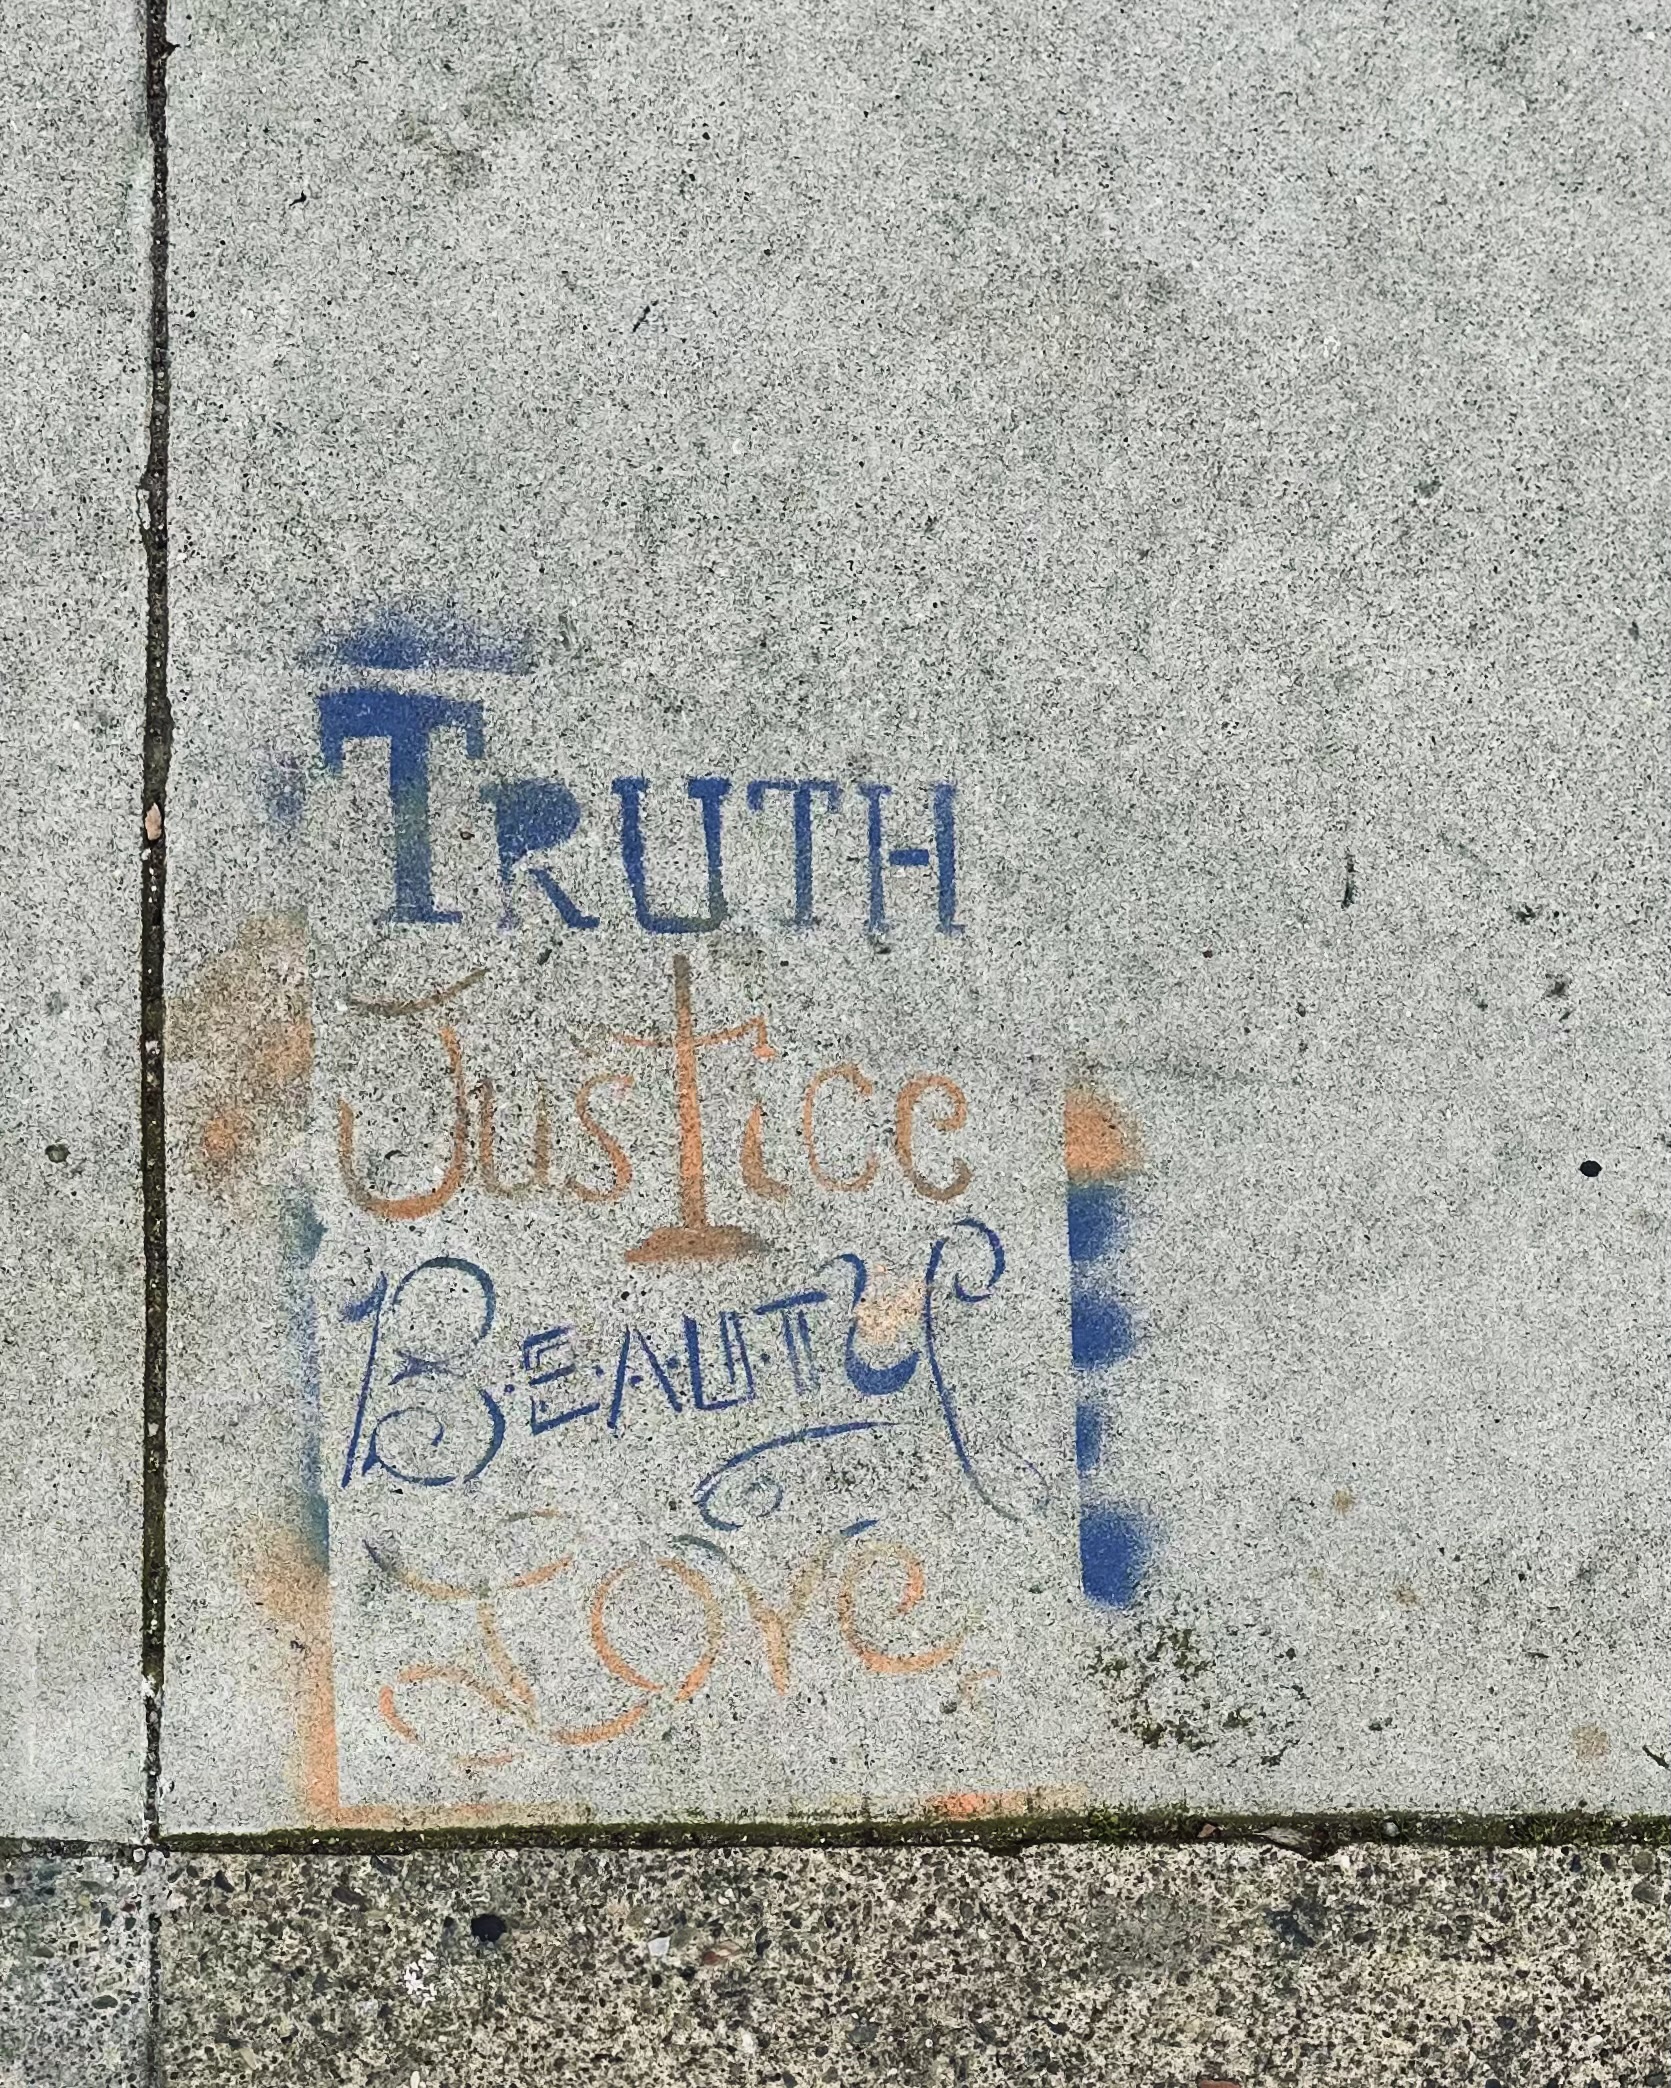 TRUTH
Justice
B·E·A·U·T·Y
Love